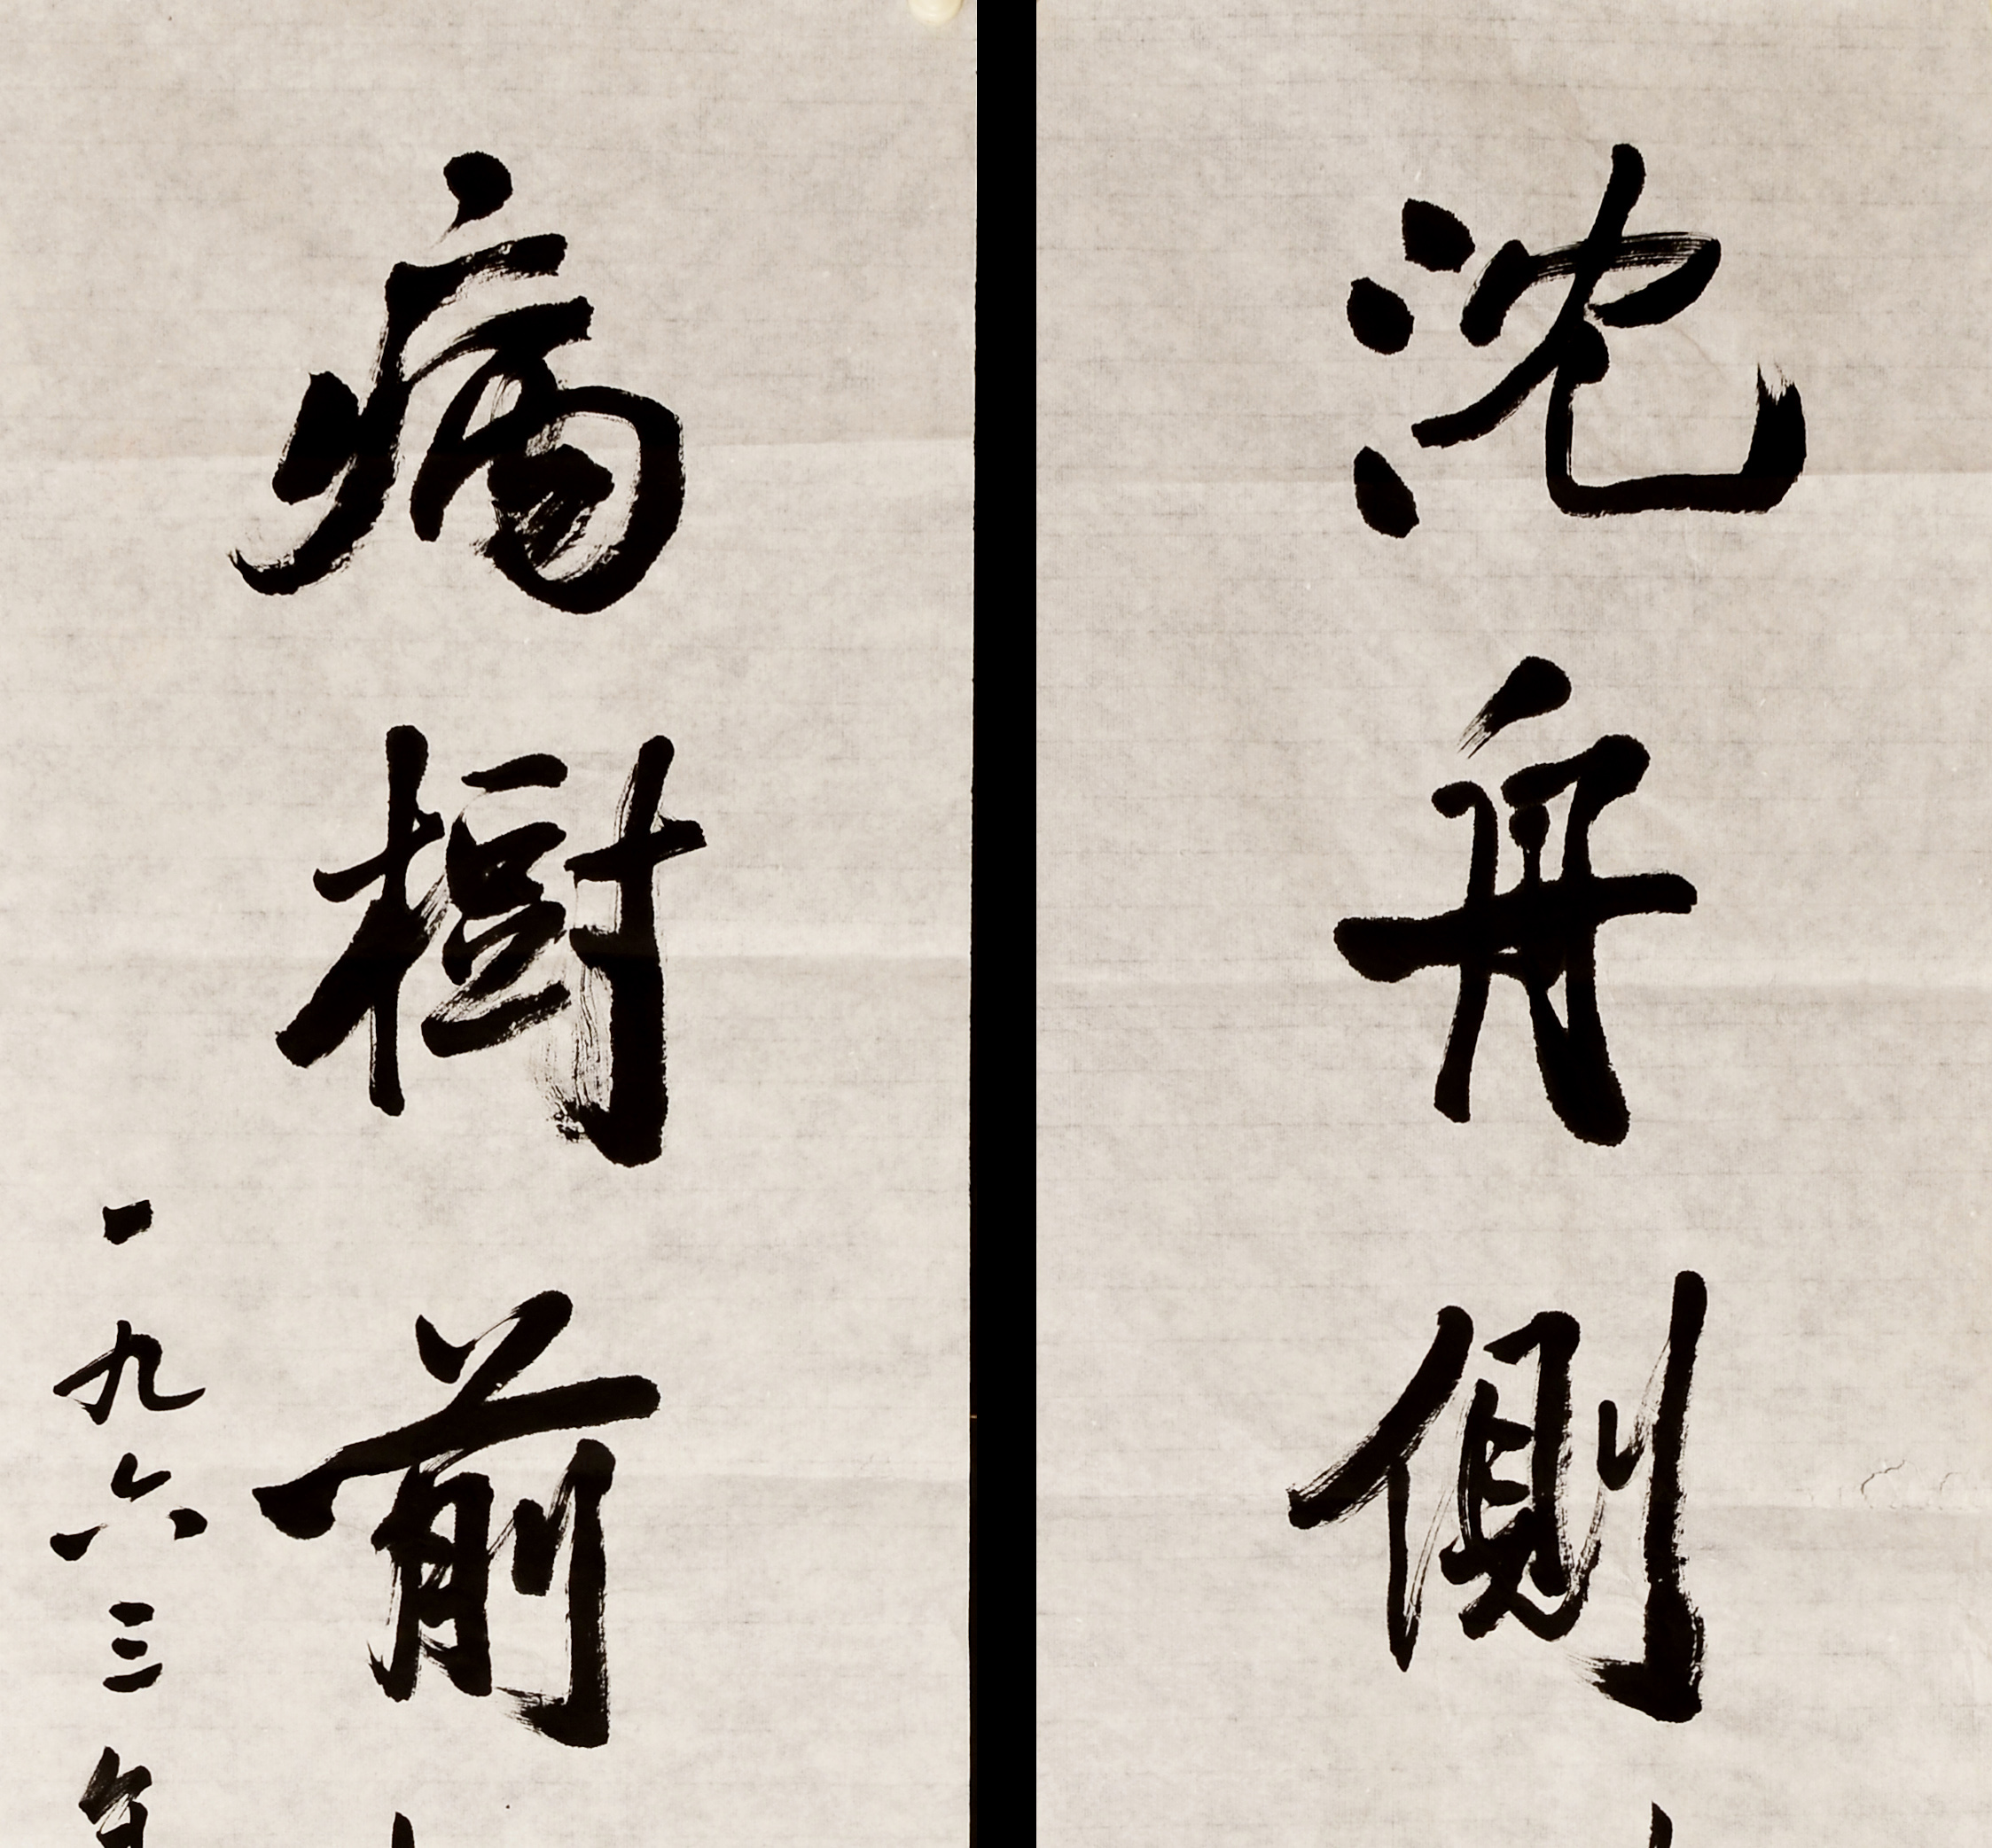 沈舟側
病樹前
一九六三年